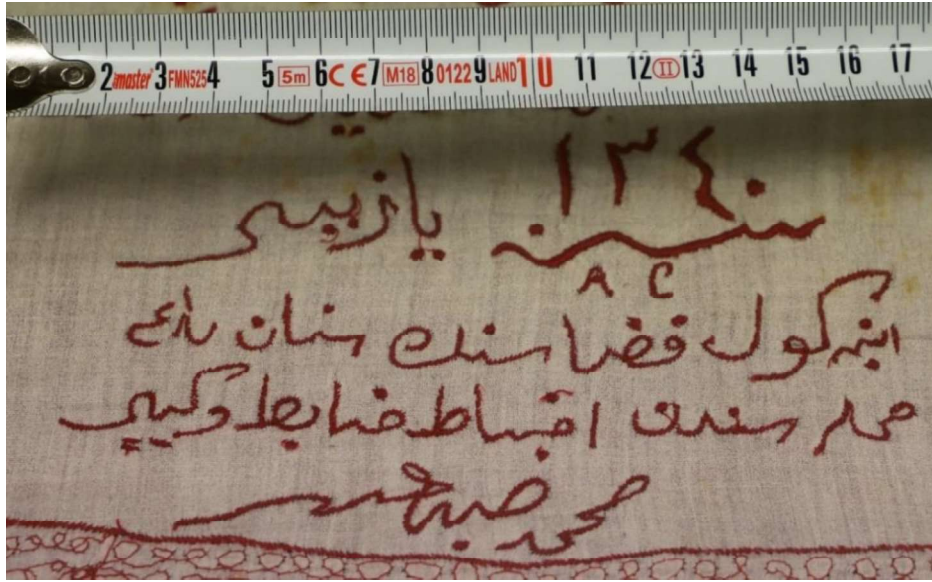 2 master 3 FMN525 4 5 5m 6 CE 7 M18 8 0122 9 LAND 10 11 12 II 13 14 15 16 17
١٣٤٠
سنه يازيسى
A C
اينه كول قضاسنك سنان
محله سندن ضابط وكيلى
محمد